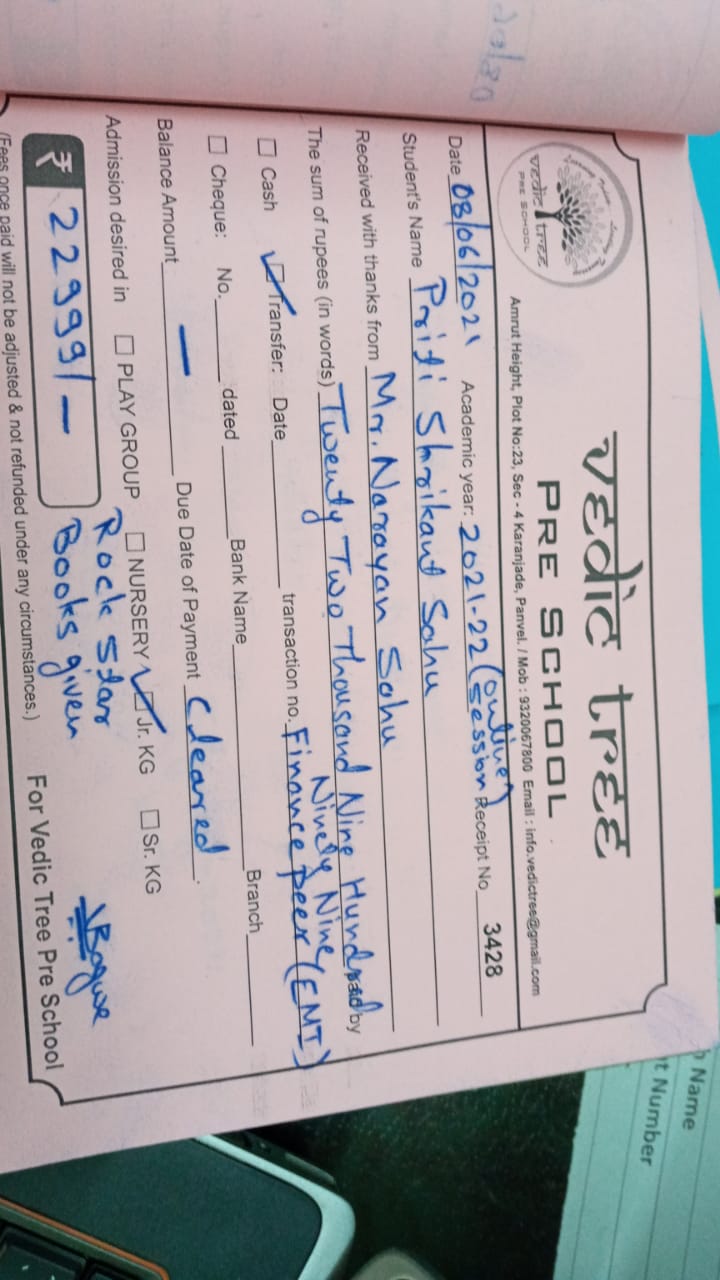 20/80
vedic tree
PRE SCHOOL
vedic tree
PRE SCHOOL
Amrut Height, Plot No:23, Sec - 4 Karanjade, Panvel. / Mob : 9320067800 Email : info.vedictree@gmail.com
Date 08/06/2021 Academic year: 2021-22 (online session) Receipt No. 3428
Student's Name Priti Shrikant Sahu
Received with thanks from Mr. Narayan Sahu
The sum of rupees (in words) Twenty Two Thousand Nine Hundred paid by
Ninety Nine
☐ Cash ☑ Transfer: Date transaction no. Finance peer (EMI)
☐ Cheque: No. dated Bank Name Branch
Balance Amount — Due Date of Payment Cleared.
Admission desired in ☐ PLAY GROUP ☐ NURSERY ☑ Jr. KG ☐ Sr. KG
Rock Star
₹ 22999/- Books given
For Vedic Tree Pre School
(Fees once paid will not be adjusted & not refunded under any circumstances.)
Name
t Number